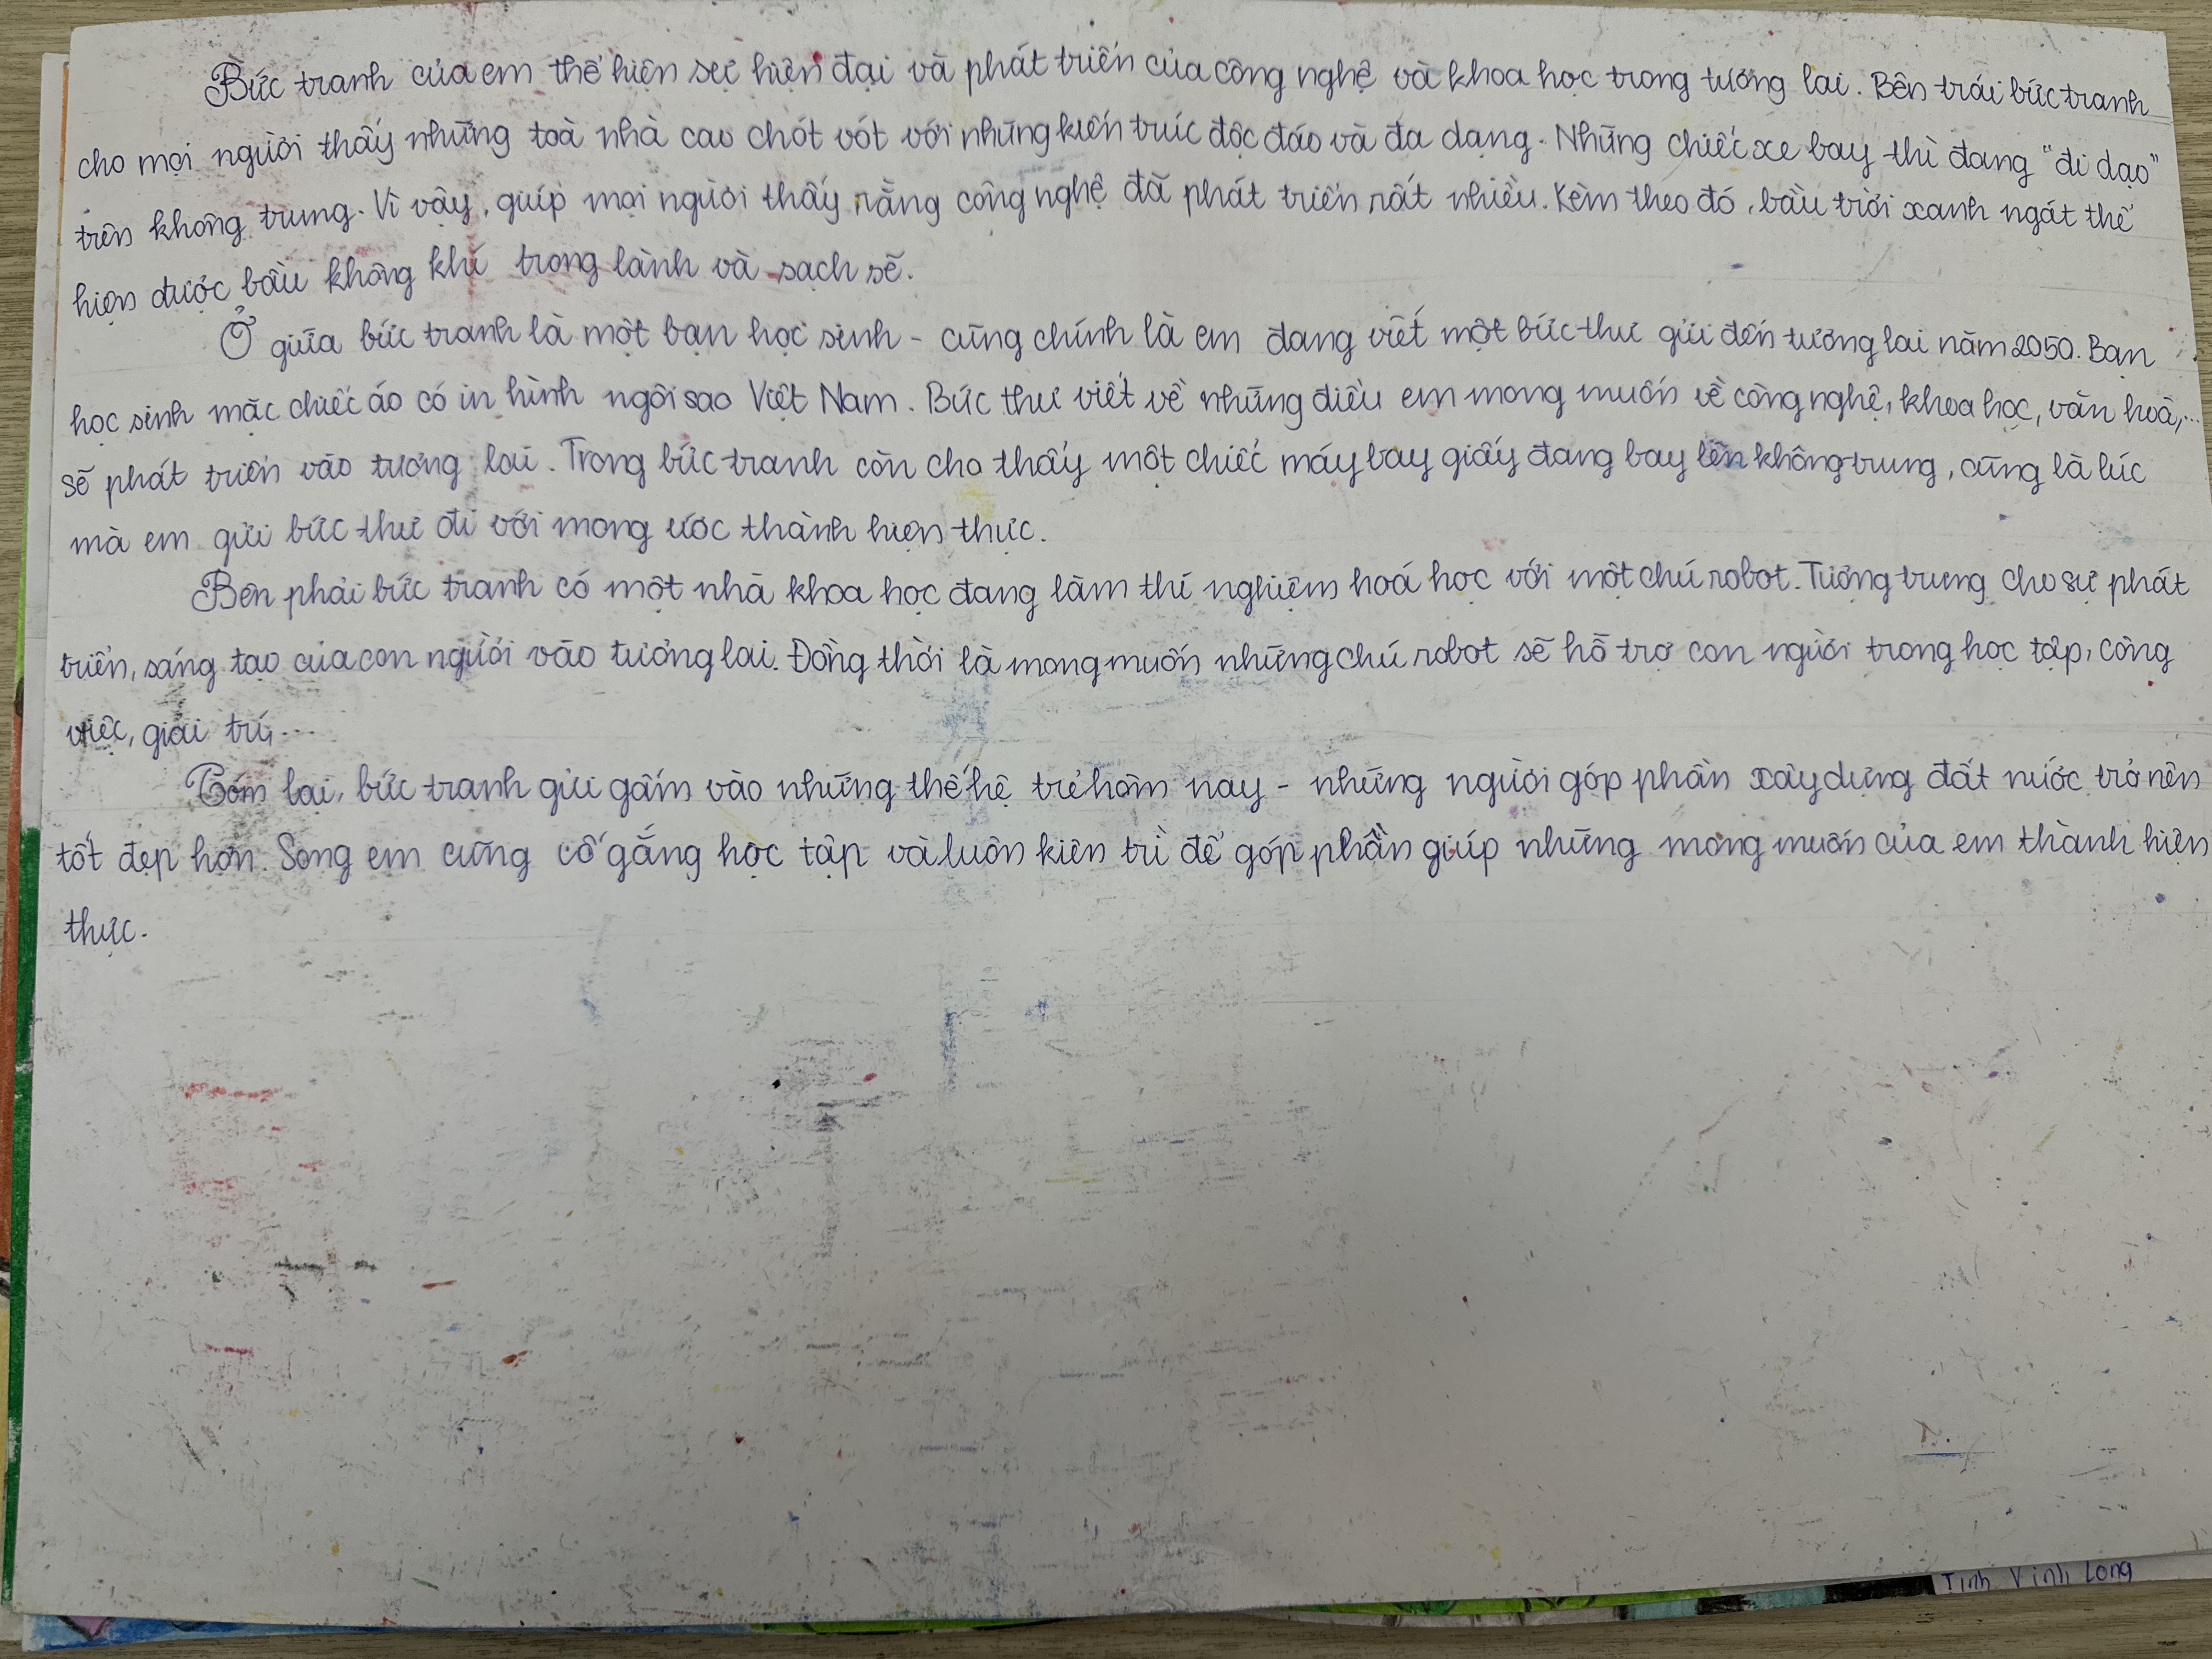 Bức tranh của em thể hiện sự hiện đại và phát triển của công nghệ và khoa học trong tương lai. Bên trái bức tranh
cho mọi người thấy những toà nhà cao chót vót với những kiến trúc độc đáo và đa dạng. Những chiếc xe bay thì đang "đi dạo"
trên không trung. Vì vậy, giúp mọi người thấy rằng công nghệ đã phát triển rất nhiều. Kèm theo đó, bầu trời xanh ngát thể
hiện được bầu không khí trong lành và sạch sẽ.
Ở giữa bức tranh là một bạn học sinh - cũng chính là em đang viết một bức thư gửi đến tương lai năm 2050. Bạn
học sinh mặc chiếc áo có in hình ngôi sao Việt Nam. Bức thư viết về những điều em mong muốn về công nghệ, khoa học, văn hoà,...
sẽ phát triển vào tương lai. Trong bức tranh còn cho thấy một chiếc máy bay giấy đang bay lên không trung, cũng là lúc
mà em gửi bức thư đi với mong ước thành hiện thực.
Bên phải bức tranh có một nhà khoa học đang làm thí nghiệm hoá học với một chú robot. Tượng trưng cho sự phát
triển, sáng tạo của con người vào tương lai. Đồng thời là mong muốn những chú robot sẽ hỗ trợ con người trong học tập, công
việc, giải trí,...
Tóm lại, bức tranh gửi gấm vào những thế hệ trẻ hôm nay - những người góp phần xây dựng đất nước trở nên
tốt đẹp hơn. Song em cũng cố gắng học tập và luôn kiên trì để góp phần giúp những mong muốn của em thành hiện
thực.
Tỉnh Vĩnh Long